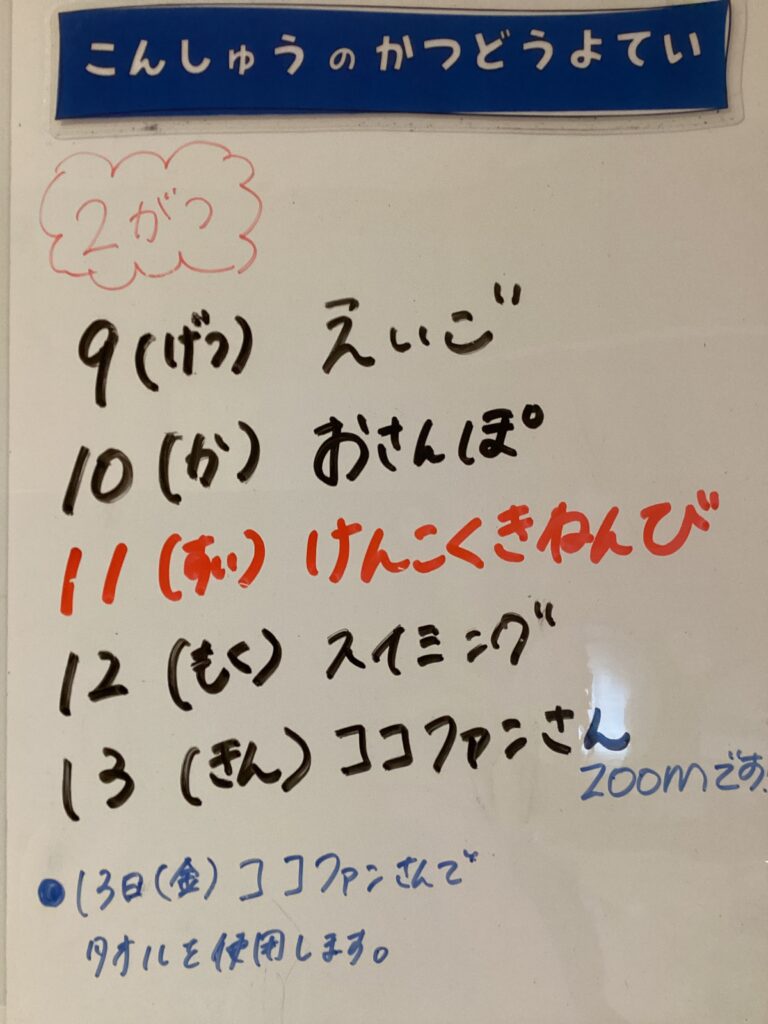 こんしゅうのかつどうよてい
2がつ
9(げつ) えいご
10(か) おさんぽ
11(すい) けんこくきねんび
12(もく) スイミング
13(きん) ココファンさん
zoomです。
●13日(金)ココファンさんで
タオルを使用します。